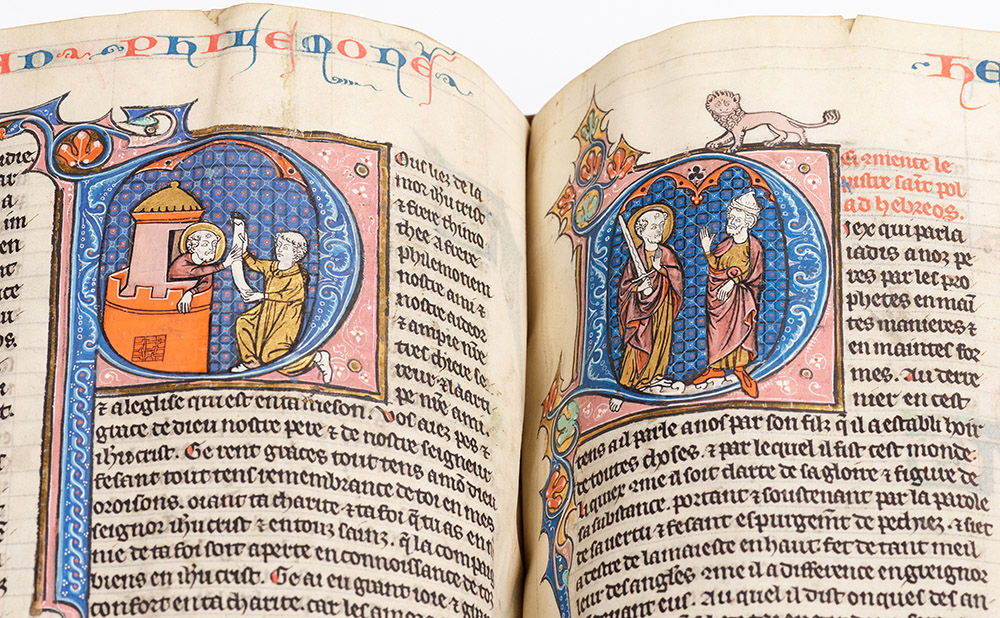 ad philemonē
idre.
ar
a
im
en
nt
ice
te
os.
Ous liez de la
mor ihū crist
⁊ frere thimo
thee a frere
philemonem
nostre ami ⁊
nostre aideor
⁊ ampie nr̄e
tres chiere se
reur ⁊ la arti
pe nr̄e ami.
⁊ a leglise qui est en ta meson. Vos aiez pes ⁊
grace de dieu nostre pere ⁊ de nostre seigneur
ihū crist. Ge rent graces tout tens a mō dieu
fesant tout tens remembrance de toi en mes
oroisons. oiant ta charite ⁊ ta foi q̄ tu as en n
seignor ihū crist ⁊ en touz sainz. q̄ la compaig
nie de ta foi soit aperte en connoissance de to
biens en ihū crist. Ge ai eu grant ioie ⁊ gran
confort en ta charite. car les am
he
Ci cmence le
pistre saint pol
ad hebreos.
iex qui parla
iadis a noz pe
res par les pro
phetes en maī
tes manieres ⁊
en maintes for
mes. Au derre
nier en cest
tens a il parle a nos par son filz q̄ il a establi hoir
de toutes choses. ⁊ par lequel il fist cest monde.
li quiex cōme il soit clarte de sa gloire ⁊ figure de
sa substance. portant ⁊ soustenant par la parole
de sa vertu ⁊ fesant espurgemt de pechiez. ⁊ siet
a destre de la maieste en haut. fet de tant meil
leur des angles. cōme il a difference en greignor
deuant eus. Au quel il dist onques des an